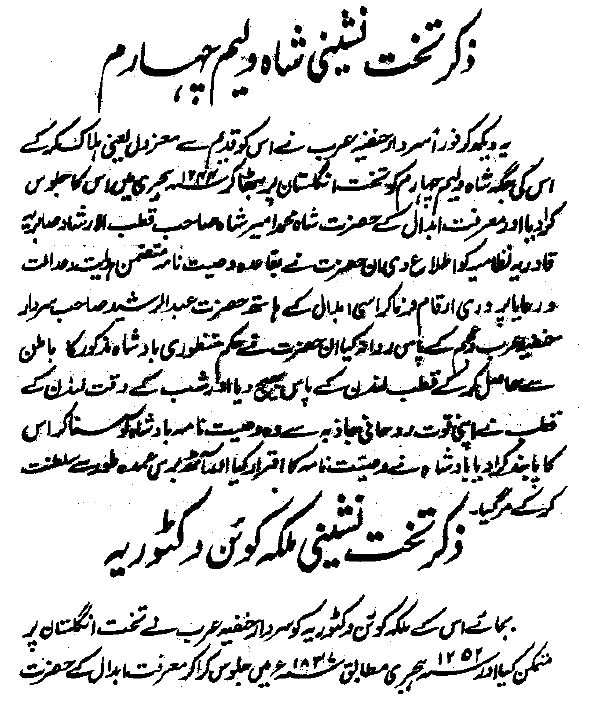 ذکر تخت نشینی شاہ ولیم چہارم
یہ دیکھ کر فوراً سردار خفیہ عرب نے اس کو قدیم سے معزول یعنی ہلاک کر کے
اس کی جگہ شاہ ولیم چہارم کو تخت انگلستان پر بٹھا کر ہجری میں اس کا جلوس
کرا دیا اور معرفت ابدال کے حضرت شاہ محمد امیر شاہ صاحب قطب الارشاد صابریہ
قادریہ نظامیہ کو اطلاع دی ان حضرت نے بقاعدہ وصیت نامہ متضمن وعدالت
ورعایا پروری ارقام فرما کر اسی ابدال کے ہاتھ حضرت عبدالرشید صاحب سردار
خفیہ عرب وعجم کے پاس روانہ کیا ان حضرت نے حکم منظوری بادشاہ مذکور کا باطن
سے حاصل کر کے قطب لندن کے پاس بھیج دیا اور شب کے وقت لندن کے
قطب نے اپنی قوت روحانی جاذبہ سے وہ وصیت نامہ بادشاہ کو سنا کر اس
کا پابند کرا دیا بادشاہ نے وصیت نامہ کا اقرار کیا اور آٹھ برس عمدہ طور سے سلطنت
کر کے مر گیا۔
ذکر تخت نشینی ملکہ کوئن وکٹوریہ
بجائے اس کے ملکہ کوئن وکٹوریہ کو سردار خفیہ عرب نے تخت انگلستان پر
متمکن کیا اور ۱۲۵۲ ہجری مطابق ۱۸۳۷ء میں جلوس کرا کر معرفت ابدال کے حضرت